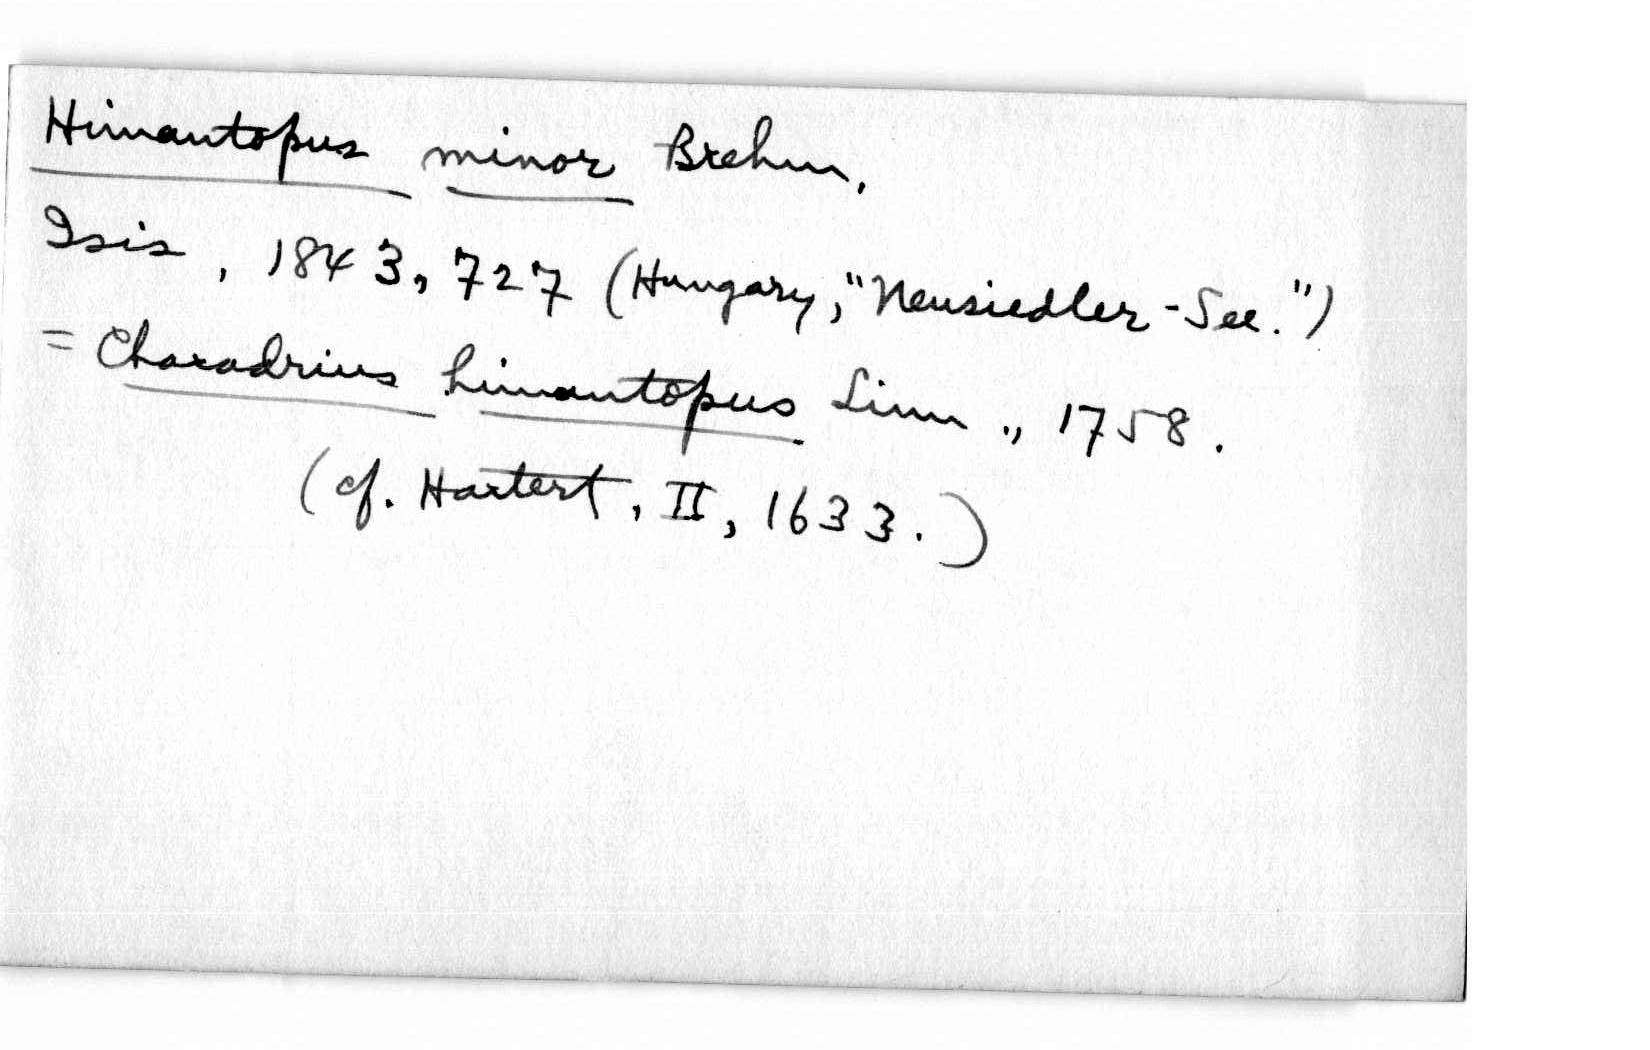 Himantopus minor Brehm,
Isis, 1843, 727 (Hungary, "Neusiedler-See.")
= Charadrius himantopus Linn., 1758.
(cf. Hartert, II, 1633.)